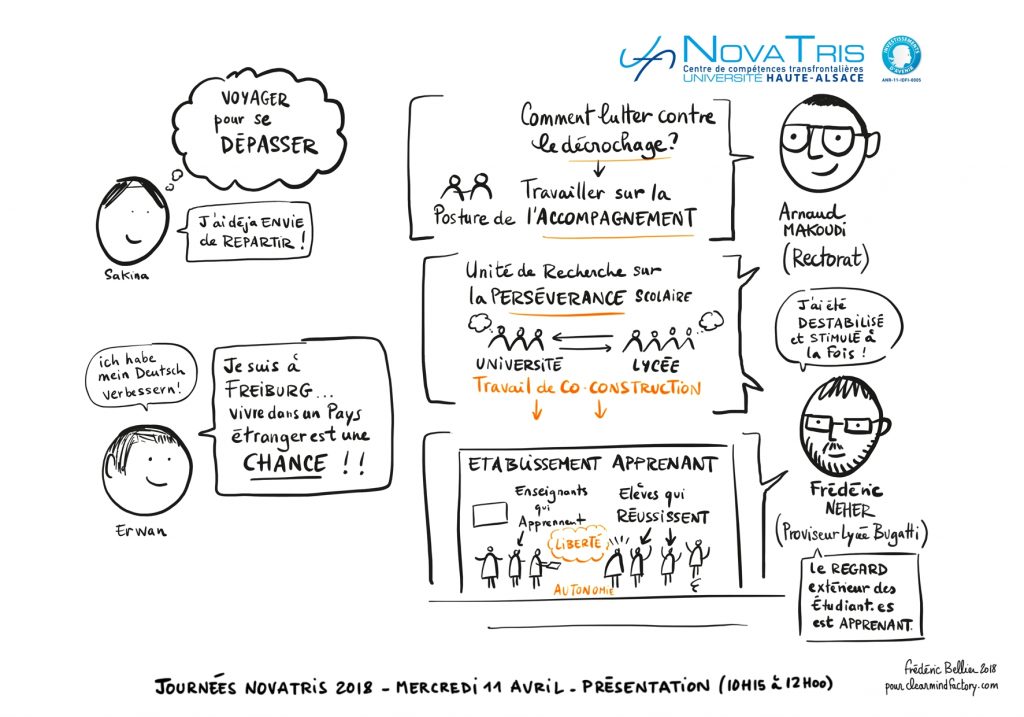 NOVATRIS
Centre de compétences transfrontalières
UNIVERSITÉ HAUTE-ALSACE
INVESTISSEMENTS
D'AVENIR
ANR-11-IDFI-0005
VOYAGER
pour se
DÉPASSER
J'ai déja ENVIE
de REPARTIR !
Sakina
ich habe
mein Deutsch
verbessern!
Je suis à
FREIBURG...
vivre dans un Pays
étranger est une
CHANCE !!
Erwan
Comment lutter contre
le décrochage ?
Travailler sur la
Posture de l'ACCOMPAGNEMENT
Arnaud
MAKOUDI
(Rectorat)
Unité de Recherche sur
la PERSÉVERANCE SCOLAIRE
UNIVERSITÉ LYCÉE
Travail de CO-CONSTRUCTION
J'ai été
DESTABILISÉ
et STIMULÉ à
la Fois !
Frédéric
NEHER
(Proviseur Lycée Bugatti)
ETABLISSEMENT APPRENANT
Enseignants
qui
Apprennent
Elèves qui
RÉUSSISSENT
LIBERTÉ
AUTONOMIE
Le REGARD
extérieur des
Étudiant.es
est APPRENANT.
JOURNÉES NOVATRIS 2018 - MERCREDI 11 AVRIL - PRÉSENTATION (10H15 à 12H00)
Frédéric Bellier 2018
pour clearmindfactory.com